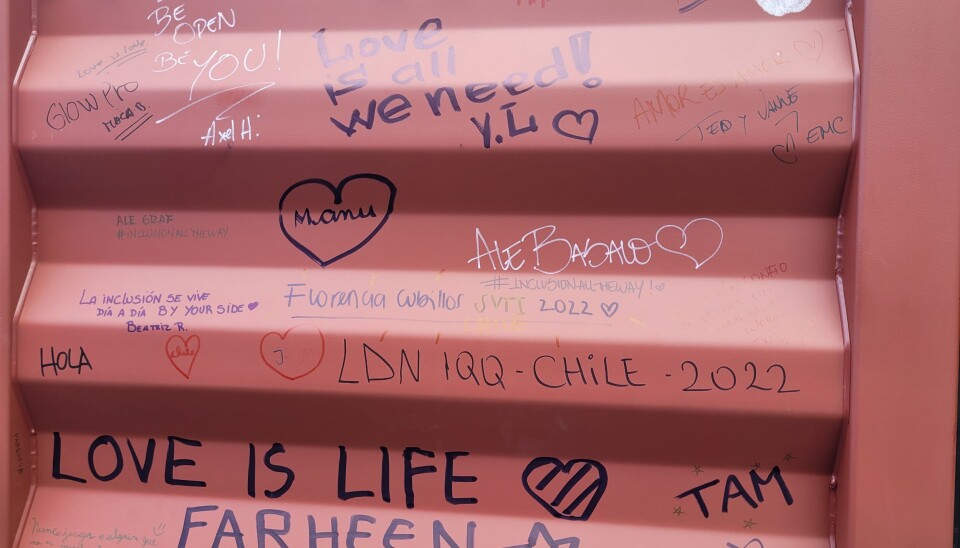 BE
OPEN
BE
YOU!
Love is love
GLOW PRO
Axel H.
Love
is all
we need!
Y.L
AMOR ES AMOR
TED Y VANNE
EMC
Manu
ALE GRAF
#INCLUSIONALLTHEWAY
ALE BASALO
#INCLUSIONALLTHEWAY!
LA INCLUSIÓN SE VIVE
DÍA A DÍA BY YOUR SIDE
BEATRIZ R.
Florencia Cubillos SVTI 2022
HOLA
chile
J
LDN IQQ - CHILE - 2022
LOVE IS LIFE
TAM
FARHEEN